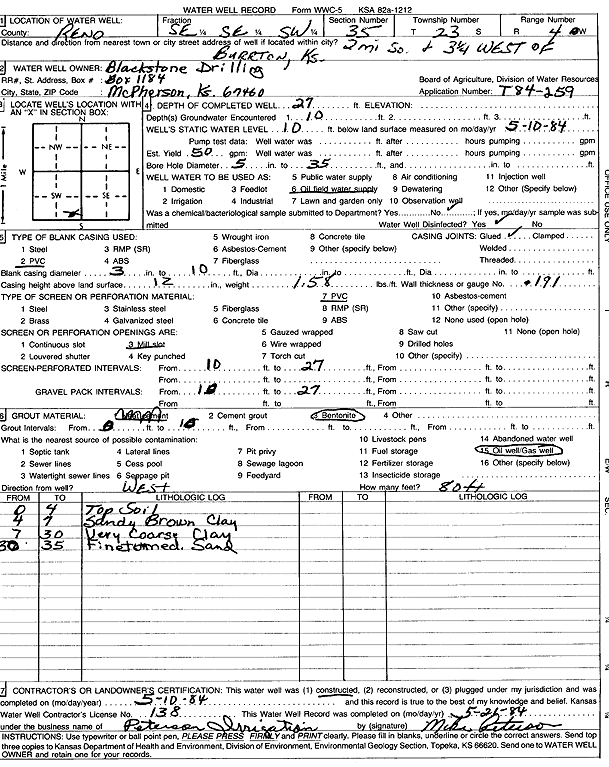 WATER WELL RECORD Form WWC-5 KSA 82a-1212
1 LOCATION OF WATER WELL: Fraction Section Number Township Number Range Number
County: RENO SE ¼ SE ¼ SW ¼ 35 T 23 S R 4 W
Distance and direction from nearest town or city street address of well if located within city? 2 mi So. + 3¼ WEST OF
BURRTON, KS.
2 WATER WELL OWNER: Blackstone Drilling
RR#, St. Address, Box # : Box 1184 Board of Agriculture, Division of Water Resources
City, State, ZIP Code : McPherson, Ks. 67460 Application Number: T84-259
3 LOCATE WELL'S LOCATION WITH AN "X" IN SECTION BOX: 4 DEPTH OF COMPLETED WELL 27 ft. ELEVATION:
Depth(s) Groundwater Encountered 1. 10 ft. 2. ft. 3. ft.
WELL'S STATIC WATER LEVEL 10 ft. below land surface measured on mo/day/yr 5-10-84
Pump test data: Well water was ft. after hours pumping gpm
Est. Yield 50 gpm: Well water was ft. after hours pumping gpm
Bore Hole Diameter 5 in. to 35 ft., and in. to ft.
WELL WATER TO BE USED AS: 5 Public water supply 8 Air conditioning 11 Injection well
1 Domestic 3 Feedlot 6 Oil field water supply 9 Dewatering 12 Other (Specify below)
2 Irrigation 4 Industrial 7 Lawn and garden only 10 Observation well
Was a chemical/bacteriological sample submitted to Department? Yes No ✓; If yes, mo/day/yr sample was submitted
Water Well Disinfected? Yes ✓ No
N
NW NE
W E
SW SE
S
1 Mile
X
5 TYPE OF BLANK CASING USED: 5 Wrought iron 8 Concrete tile CASING JOINTS: Glued ✓ Clamped
1 Steel 3 RMP (SR) 6 Asbestos-Cement 9 Other (specify below) Welded
2 PVC 4 ABS 7 Fiberglass Threaded
Blank casing diameter 3 in. to 10 ft., Dia in. to ft., Dia in. to ft.
Casing height above land surface 12 in., weight 1.58 lbs./ft. Wall thickness or gauge No. .191
TYPE OF SCREEN OR PERFORATION MATERIAL: 7 PVC 10 Asbestos-cement
1 Steel 3 Stainless steel 5 Fiberglass 8 RMP (SR) 11 Other (specify)
2 Brass 4 Galvanized steel 6 Concrete tile 9 ABS 12 None used (open hole)
SCREEN OR PERFORATION OPENINGS ARE: 5 Gauzed wrapped 8 Saw cut 11 None (open hole)
1 Continuous slot 3 Mill slot 6 Wire wrapped 9 Drilled holes
2 Louvered shutter 4 Key punched 7 Torch cut 10 Other (specify)
SCREEN-PERFORATED INTERVALS: From 10 ft. to 27 ft., From ft. to ft.
From ft. to ft., From ft. to ft.
GRAVEL PACK INTERVALS: From 10 ft. to 27 ft., From ft. to ft.
From ft. to ft., From ft. to ft.
6 GROUT MATERIAL: 2 Cement grout 3 Bentonite 4 Other
Grout Intervals: From 0 ft. to 10 ft., From ft. to ft., From ft. to ft.
What is the nearest source of possible contamination: 10 Livestock pens 14 Abandoned water well
1 Septic tank 4 Lateral lines 7 Pit privy 11 Fuel storage 15 Oil well/Gas well
2 Sewer lines 5 Cess pool 8 Sewage lagoon 12 Fertilizer storage 16 Other (specify below)
3 Watertight sewer lines 6 Seepage pit 9 Feedyard 13 Insecticide storage
Direction from well? WEST How many feet? 80ft
FROM TO LITHOLOGIC LOG FROM TO LITHOLOGIC LOG
0 4 Top Soil
4 7 Sandy Brown Clay
7 30 Very Coarse Clay
30 35 Sand
7 CONTRACTOR'S OR LANDOWNER'S CERTIFICATION: This water well was (1) constructed, (2) reconstructed, or (3) plugged under my jurisdiction and was
completed on (mo/day/year) 5-10-84 and this record is true to the best of my knowledge and belief. Kansas
Water Well Contractor's License No. 138 This Water Well Record was completed on (mo/day/yr) 5-21-84
under the business name of Peterson Irrigation by (signature) Mike Peterson
INSTRUCTIONS: Use typewriter or ball point pen, PLEASE PRESS FIRMLY and PRINT clearly. Please fill in blanks, underline or circle the correct answers. Send top
three copies to Kansas Department of Health and Environment, Division of Environment, Environmental Geology Section, Topeka, KS 66620. Send one to WATER WELL
OWNER and retain one for your records.
OFFICE USE ONLY
T
R
E/W
SEC.